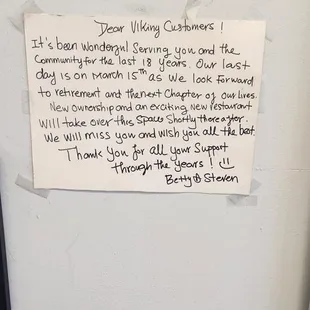 Dear Viking Customers !
It's been Wonderful Serving you and the
Community for the last 18 years. Our last
day is on March 15th as We look forward
to retirement and the next Chapter of our lives.
New ownership and an exciting New restaurant
will take over this Space Shortly thereafter.
We will miss you and wish you all the best.
Thank you for all your Support
through the years ! :)
Betty & Steven